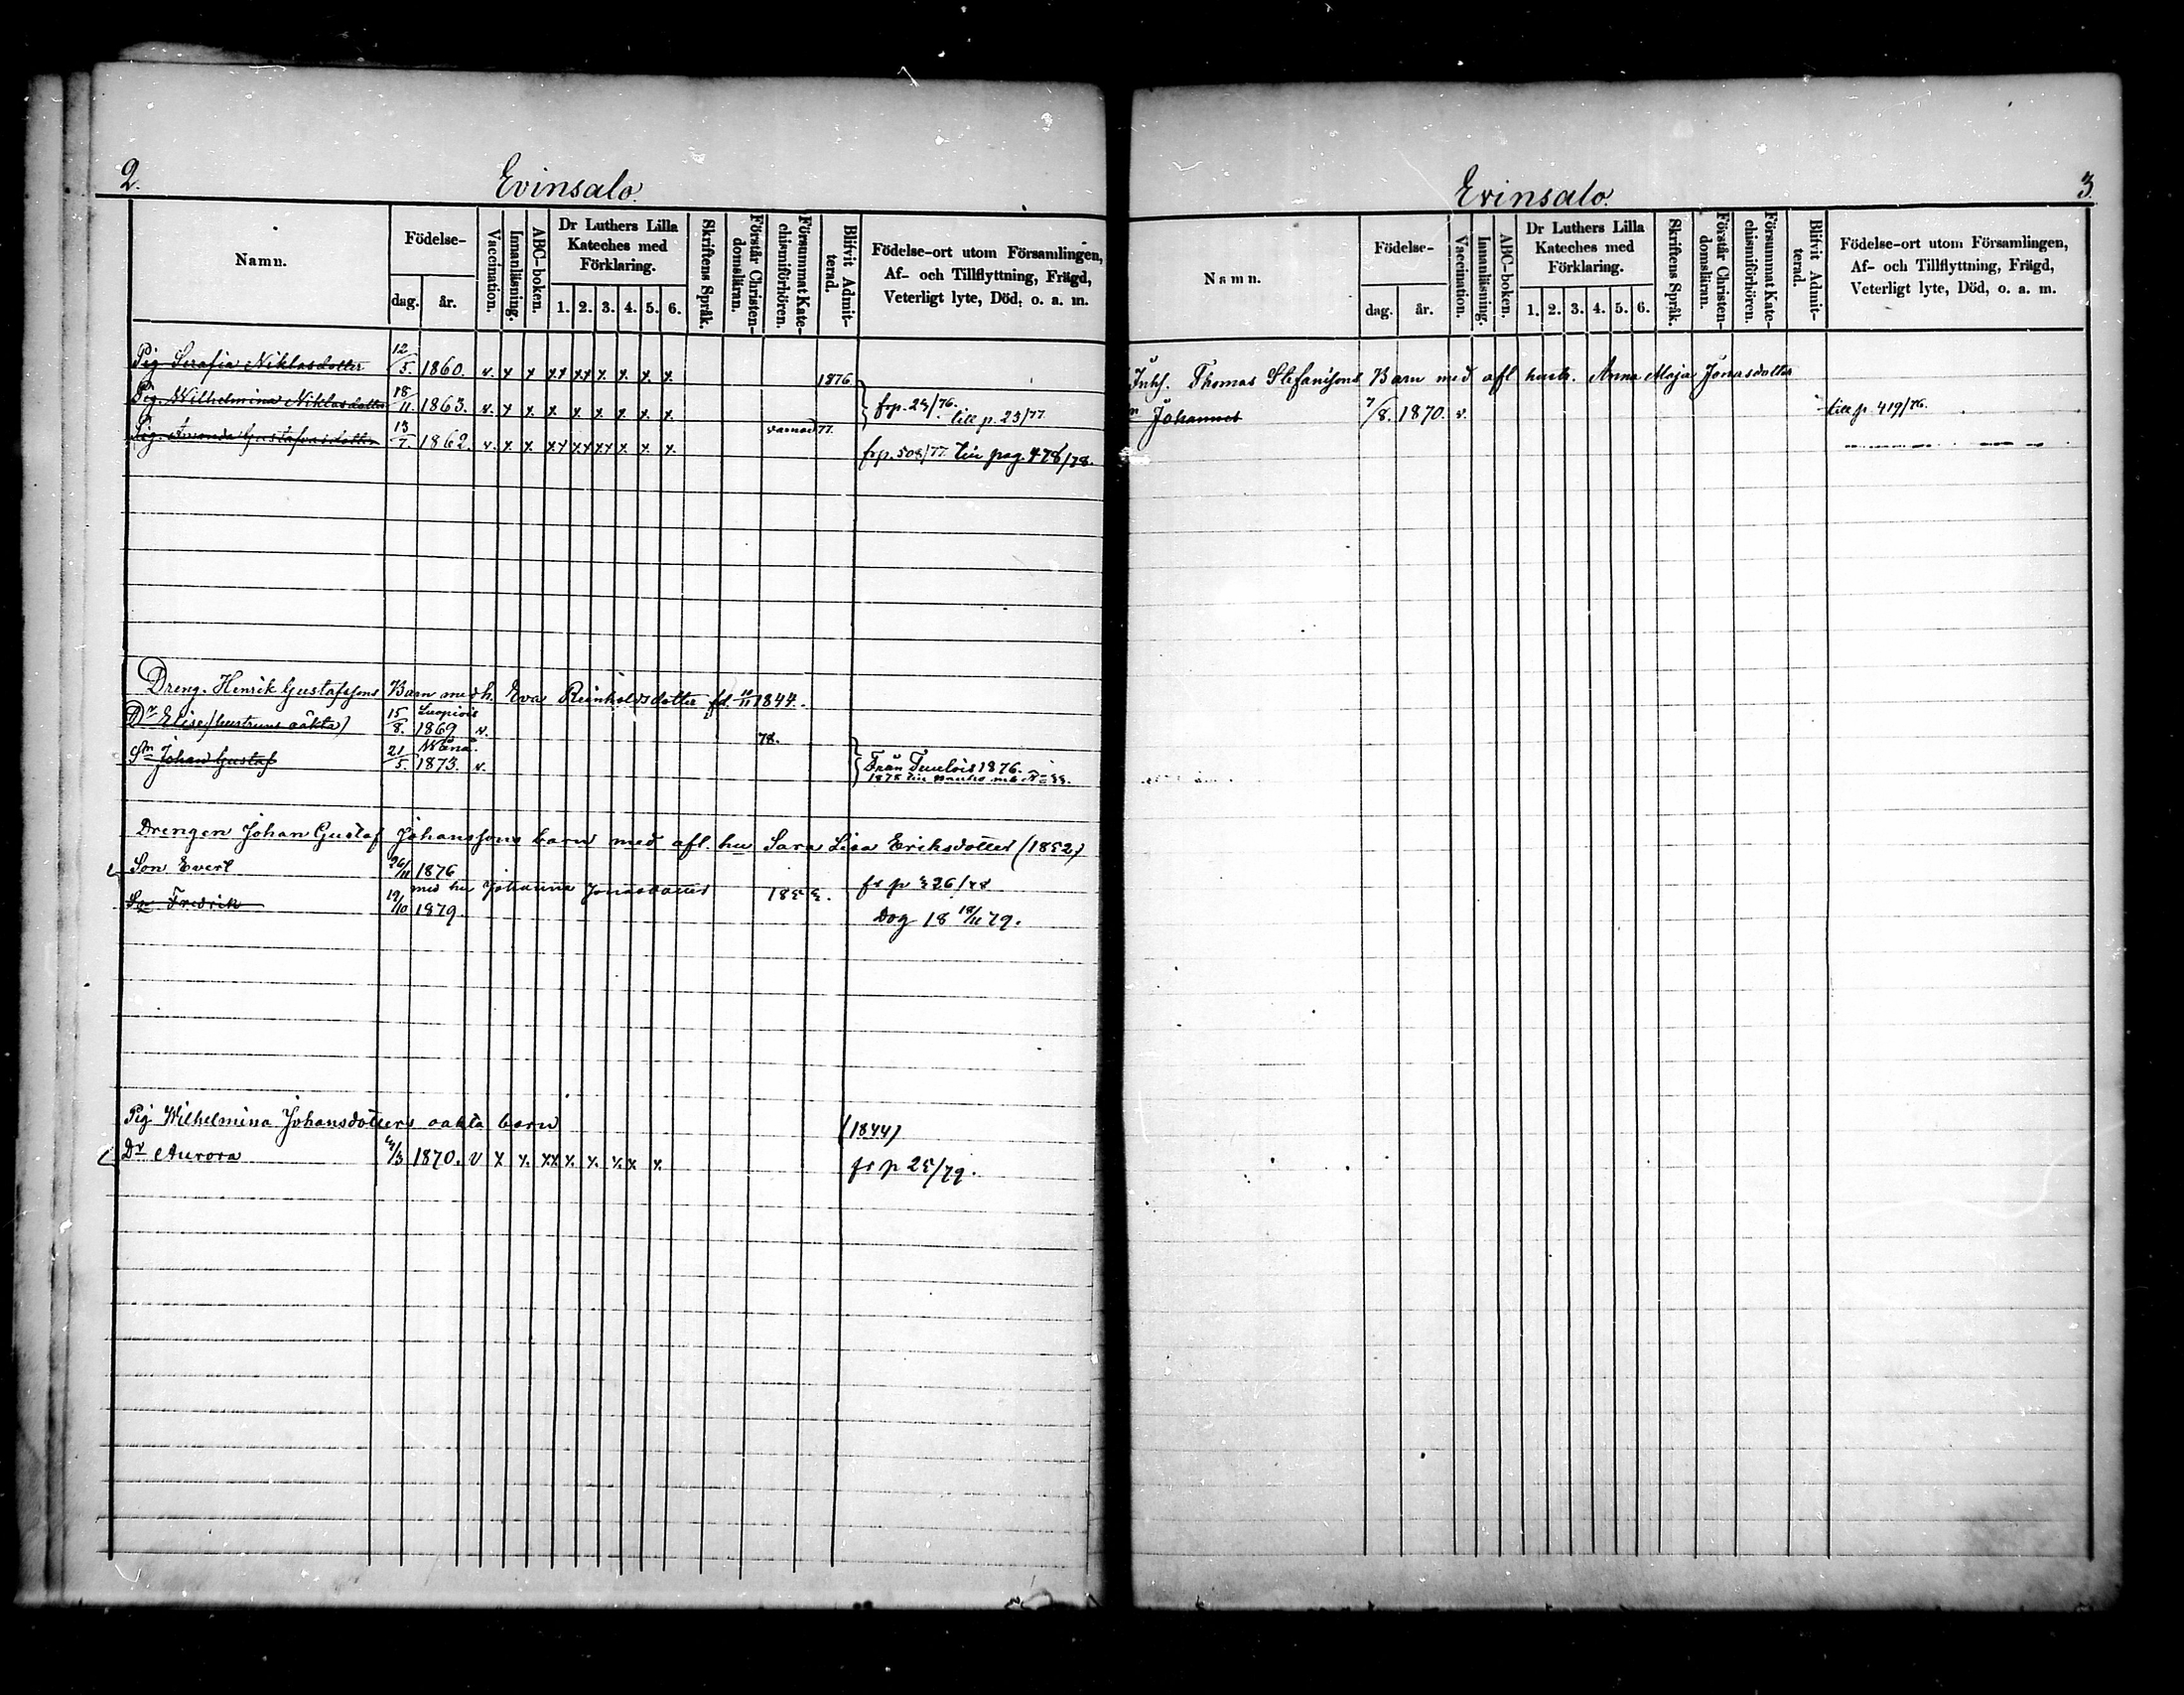 2.
Evinsalo.
Namn.
Födelse-
dag.
år.
Vaccination.
Innanläsning.
ABC-boken.
Dr Luthers Lilla
Kateches med
Förklaring.
1. 2. 3. 4. 5. 6.
Skriftens Språk.
Förstår Christen-
domsläran.
Försummat Kate-
chismiförhören.
Blifvit Admit-
terad.
Födelse-ort utom Församlingen,
Af- och Tillflyttning, Frägd,
Veterligt lyte, Död, o. a. m.
Pig Serafia Niklasdotter 12/5. 1860. v. x x xx xx x. x. x. x. 1876
Pig. Wilhelmina Niklasdotter 18/11 1863. v. x x. x. x. x. x. x. x. frp. 24/76. till p. 23/77
Pig. Amanda Gustafvasdotter 13/7. 1862. v. x x. xx xx xx x. x. x. 77. frp. 508/77. pag. 478/78.
Dreng. Henrik Gustafssons Barn med h. Eva Reinholdsdotter fd. 10/11 1844.
Dr Elise (hustruns oäkta) 15/8. Luopiois 1869 v.
78.
Sn Johan Gustaf 21/5. 1873. v. Från Tuulois 1876.
Drengen Johan Gustaf Johanssons barn med afl. hu Sara Lisa Eriksdotter (1852)
Son Evert 26/11 1876 fr p 326/78
med hu Johanna Jonasdotter
Sn Fredrik 19/10 1879. Dog 18 18/11 79.
Pig Wilhelmina Johansdotters oäkta barn (1844)
Dr Aurora 4/3 1870. v x x. xx x. x. x. x x. fr p 25/79.
Evinsalo.
3.
Namn.
Födelse-
dag.
år.
Vaccination.
Innanläsning.
ABC-boken.
Dr Luthers Lilla
Kateches med
Förklaring.
1. 2. 3. 4. 5. 6.
Skriftens Språk.
Förstår Christen-
domsläran.
Försummat Kate-
chismiförhören.
Blifvit Admit-
terad.
Födelse-ort utom Församlingen,
Af- och Tillflyttning, Frägd,
Veterligt lyte, Död, o. a. m.
Inhs. Thomas Stefanssons Barn med afl hustr. Anna Maja Jonasdotter
Johannes 7/8. 1870. v. till p. 419/76.